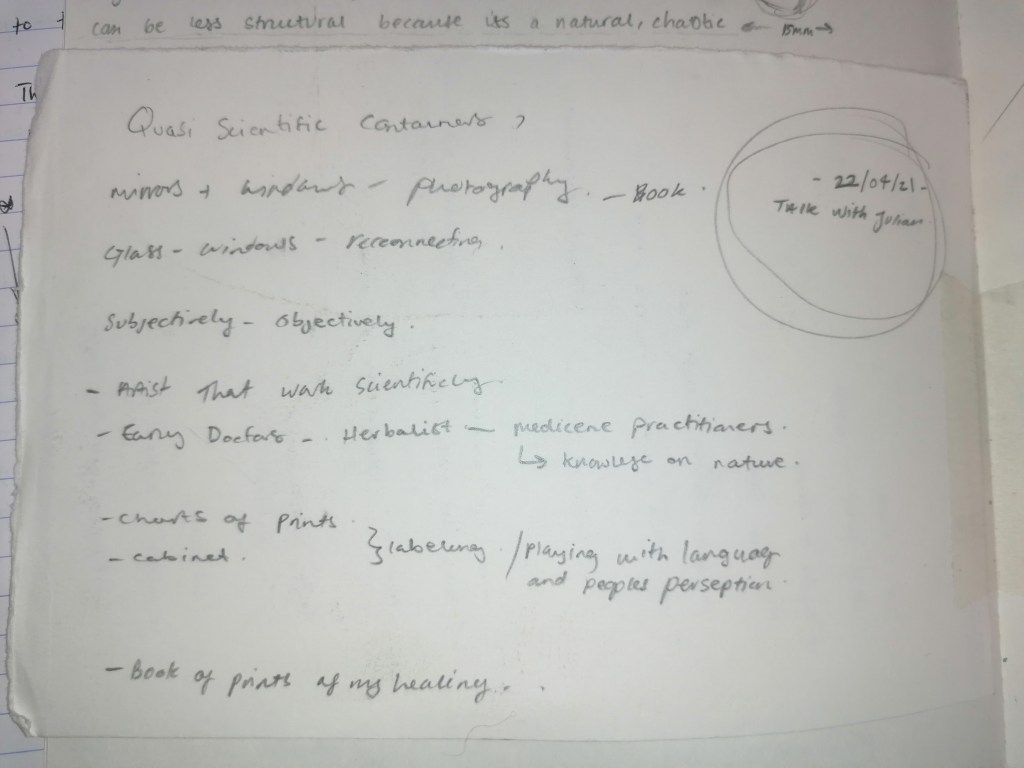 to
can be less structural because its a natural, chaotic
15mm
Th
Quasi Scientific Containers,
mirrors + windows - photography. - Book.
- 22/04/21 -
Talk with Julian.
Glass - windows - reconnecting.
Subjectively - objectively.
- Artist That work scientifically.
- Early Doctors - Herbalist - medicene practitioners.
↳ knowlege on nature.
- charts of prints.
- cabinet.
} labeling. / playing with language
and peoples perseption.
- Book of prints of my healing. .